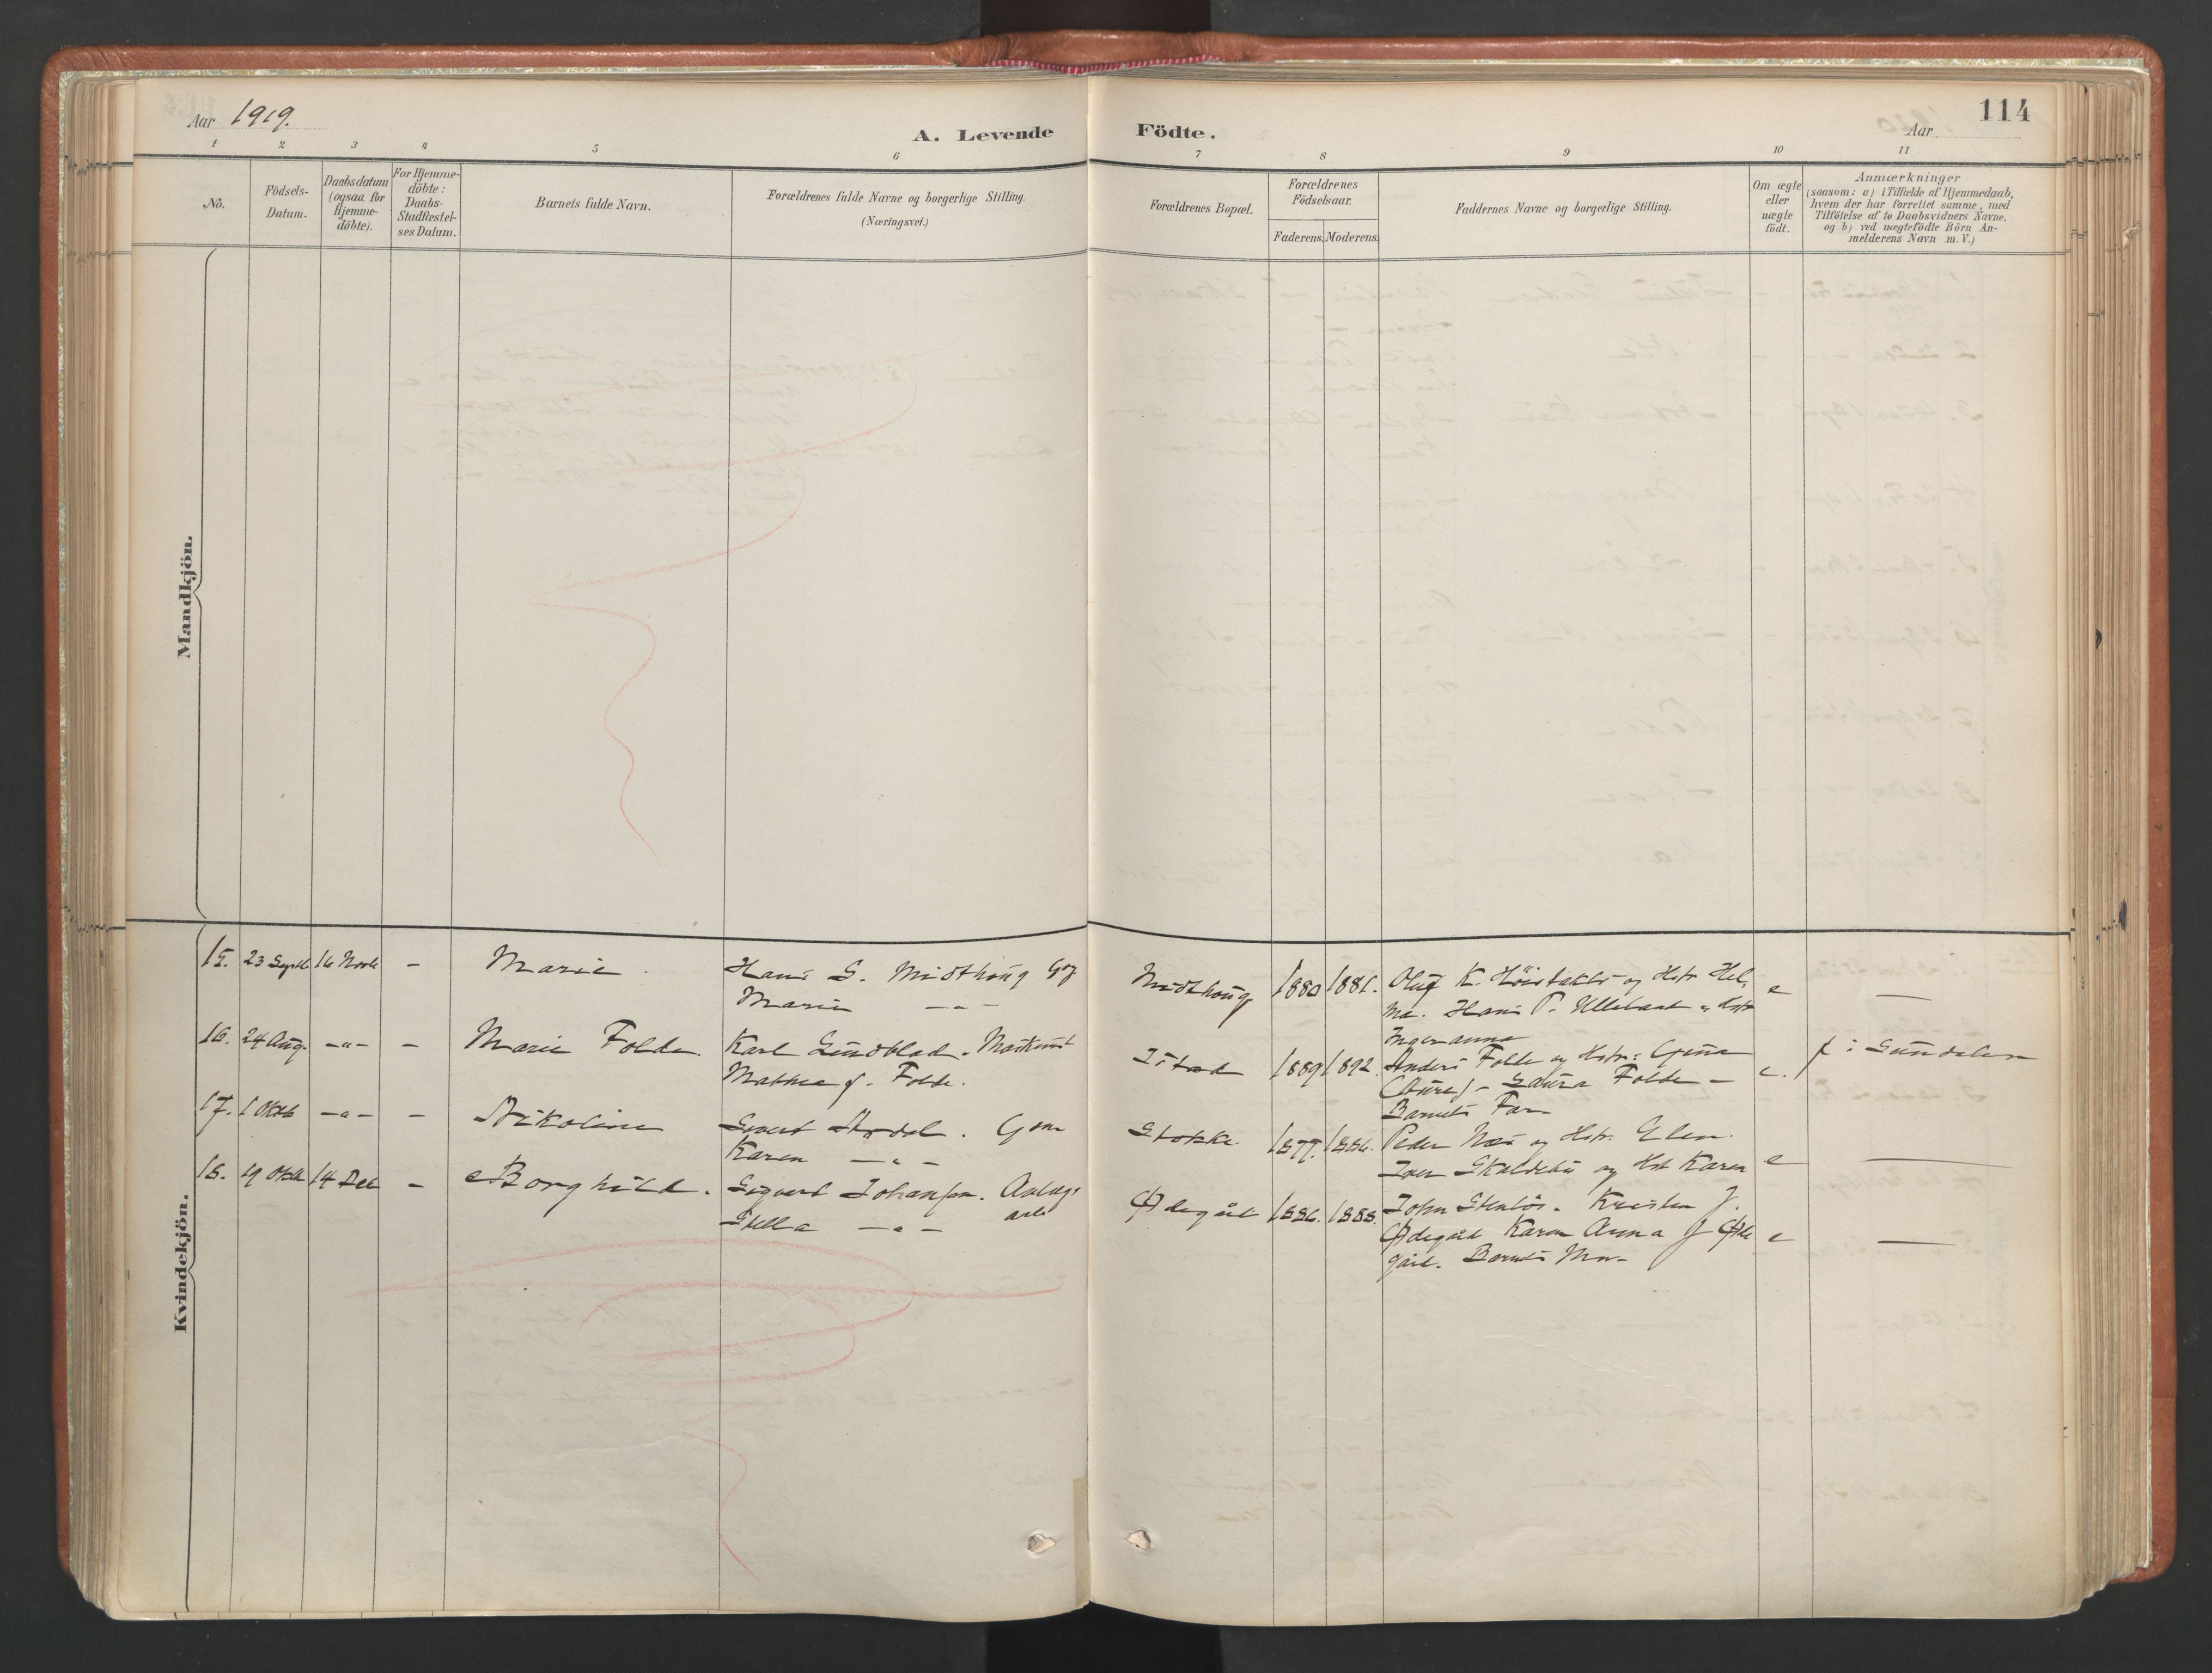 Aar 1919.
A. Levende
Födte.
114
Aar
1 2 3 4 5 6 7 8 9 10 11
No.
Födsels-
Datum.
Daabsdatum
(ogsaa for
Hjemme-
döbte).
For Hjemme-
döbte:
Daabs-
Stadfæstel-
ses Datum.
Barnets fulde Navn.
Forældrenes fulde Navne og borgerlige Stilling.
(Næringsvei.)
Forældrenes Bopæl.
Forældrenes
Födselsaar.
Faderens. Moderens.
Faddernes Navne og borgerlige Stilling.
Om ægte
eller
uægte
födt.
Anmærkninger
(saasom: a) i Tilfælde af Hjemmedaab,
hvem der har forrettet samme, med
Tilföielse af to Daabsvidners Navne,
og b) ved uægtefödte Börn An-
melderens Navn m. V.)
Mandkjön.
Kvindekjön.
15. 23 Septb 16 Novb - Marie.
Hans S. Midthaug Gbr
Marie -"-
Midthaug 1880 1881.
Oluf K. og Hstr Hel
ma. Hans P. Ulleland " Hstr
Ingeranna
e —
16. 24 Aug. -"- - Marie Folde.
Karl Lindblad. Maskinist
Mathea f. Folde.
1889 1892.
Anders Folde og Hstr: Gina
(Aure) - Laura Folde -
Barnets Far
e. f i Sundalen
17. 1 Oktb -"- - Nikoline
Sivert . Gbr
Karen -"-
Stokke. 1877. 1886.
Peder Næs og Hstr. Elen.
Iver og Hst Karen
e —
18. 19 Oktb 14 Deb - Borghild.
Sigvert Johansen. Anlægs
arb
Stella -"-
Ødegård 1886. 1888.
John Stenløs. Kristen J.
Ødegård Karen Anna J Øde
gård. Barnets Mor.
e —